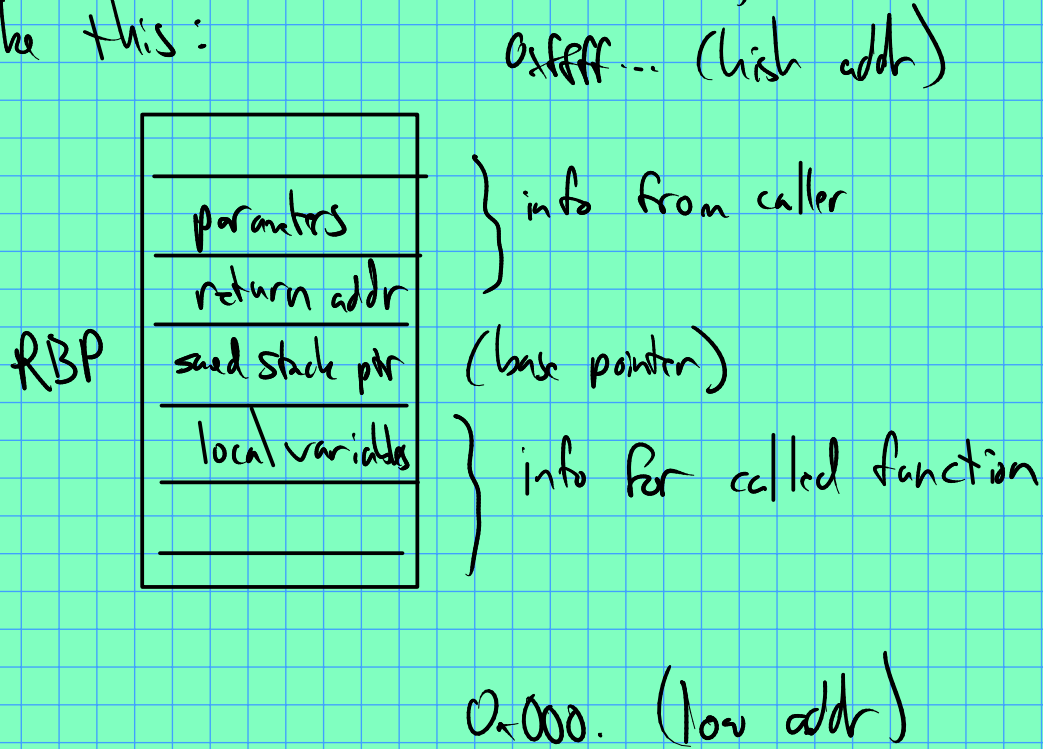 ke this:
0xffff... (high addr)
parameters
info from caller
return addr
RBP saved stack ptr (base pointer)
local variables
info for called function
0x000. (low addr)